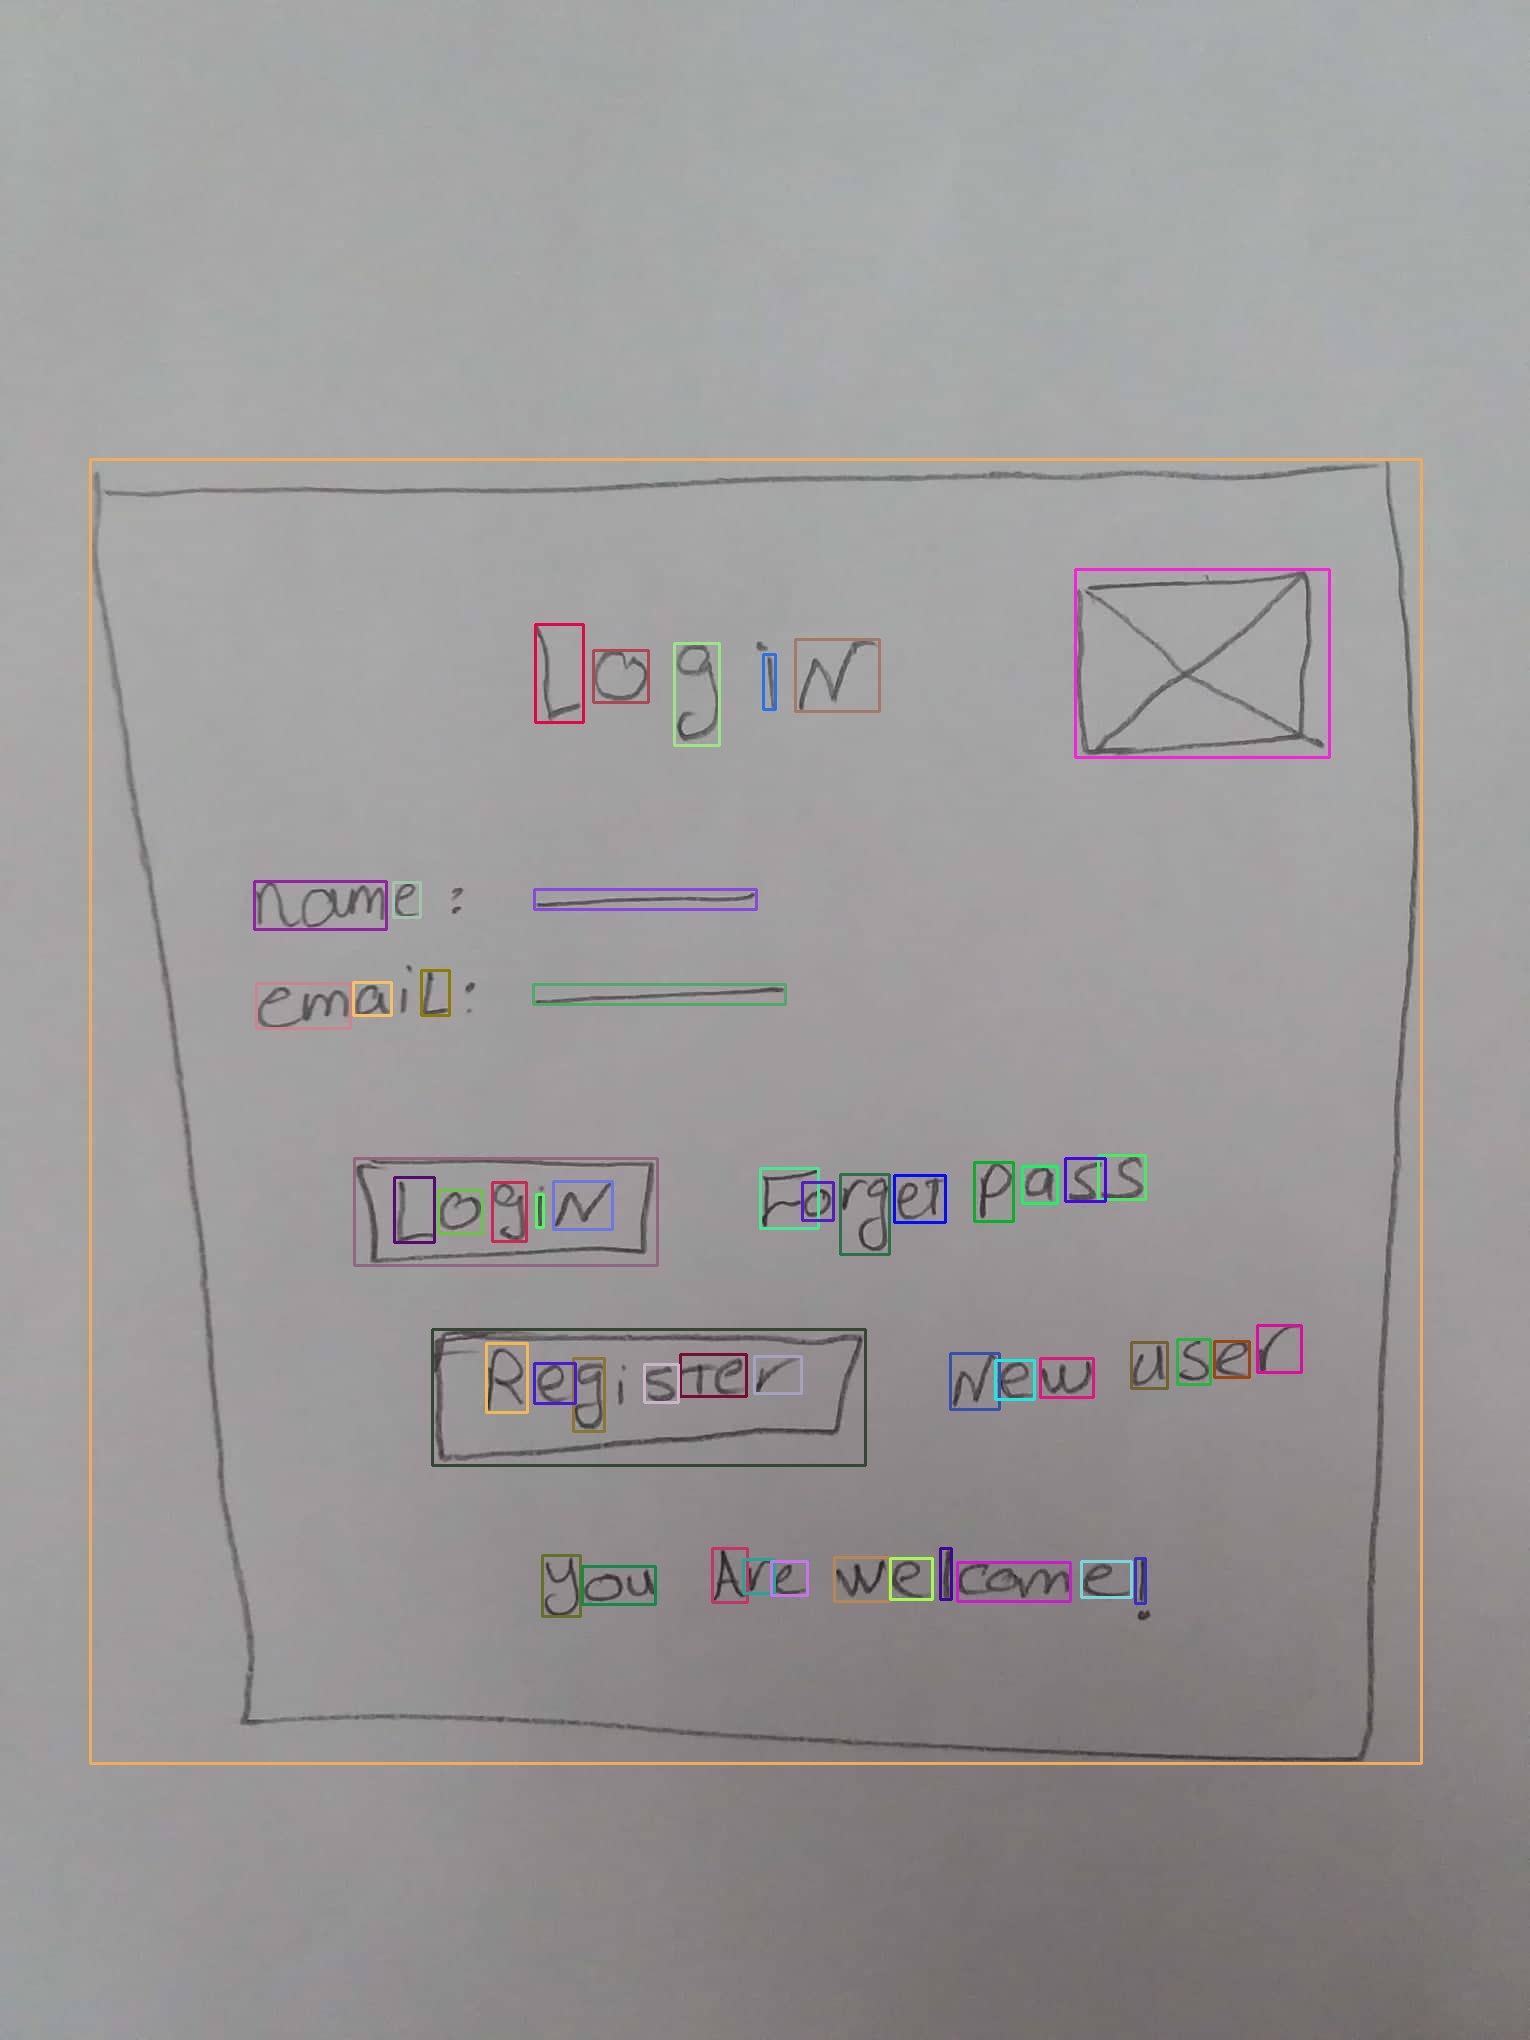 LogiN
name :
emaiL:
LogiN Forget pass
RegisTer New user
you Are welcame!